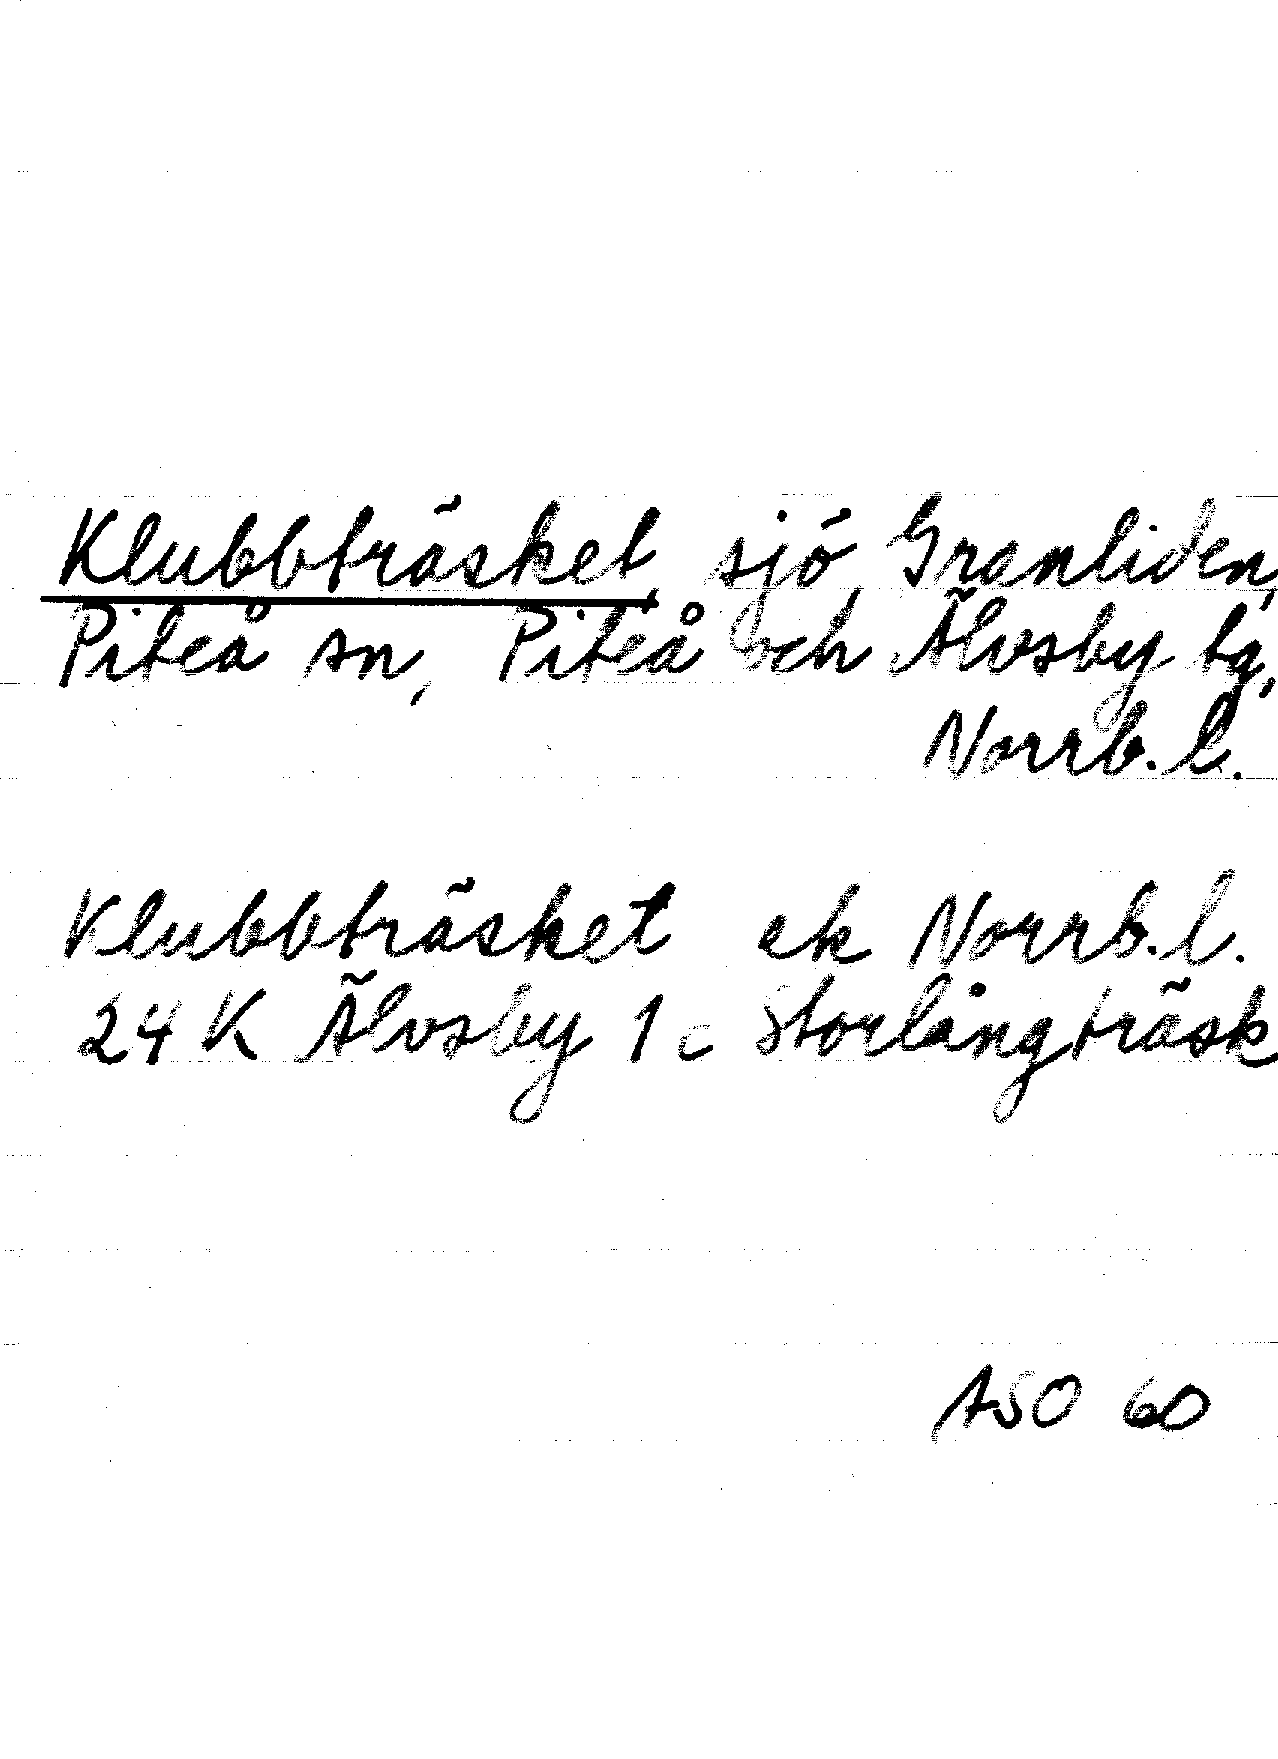 Klubbträsket, sjö, Granliden,
Piteå sn, Piteå och Älvsby tg,
Norrb.l.
Klubbträsket ek Norrb.l.
24 K Älvsby 1 c Storlångträsk
ASO 60